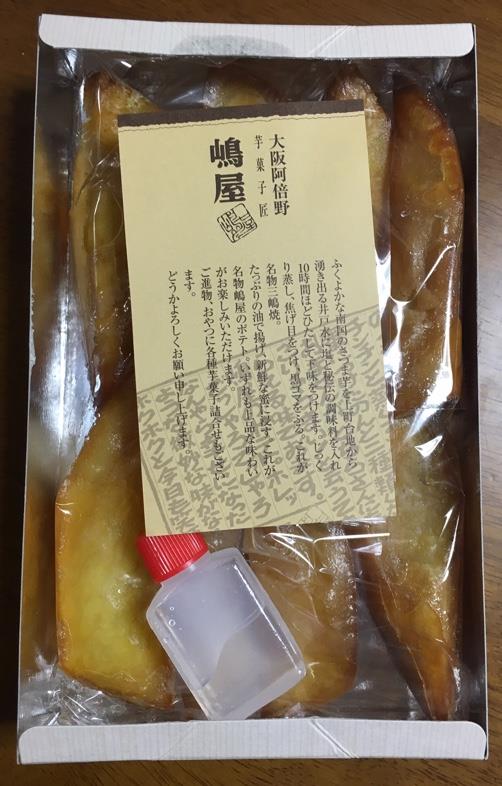 大阪阿倍野
芋菓子匠
嶋屋
ふくよかな南国のさつま芋を上町台地から
湧き出る井戸水に塩と秘伝の調味料を入れ
10時間ほどひたして下味をつけます。じっく
り蒸し、焦げ目をつけ、黒ゴマをふる。これが
名物三嶋焼。
たっぷりの油で揚げ、新鮮な蜜に浸す。これが
名物嶋屋のポテト。いずれも上品な味わい
がお楽しみいただけます。
ご進物、おやつに各種芋菓子詰合せもござい
ます。
どうかよろしくお願い申し上げます。